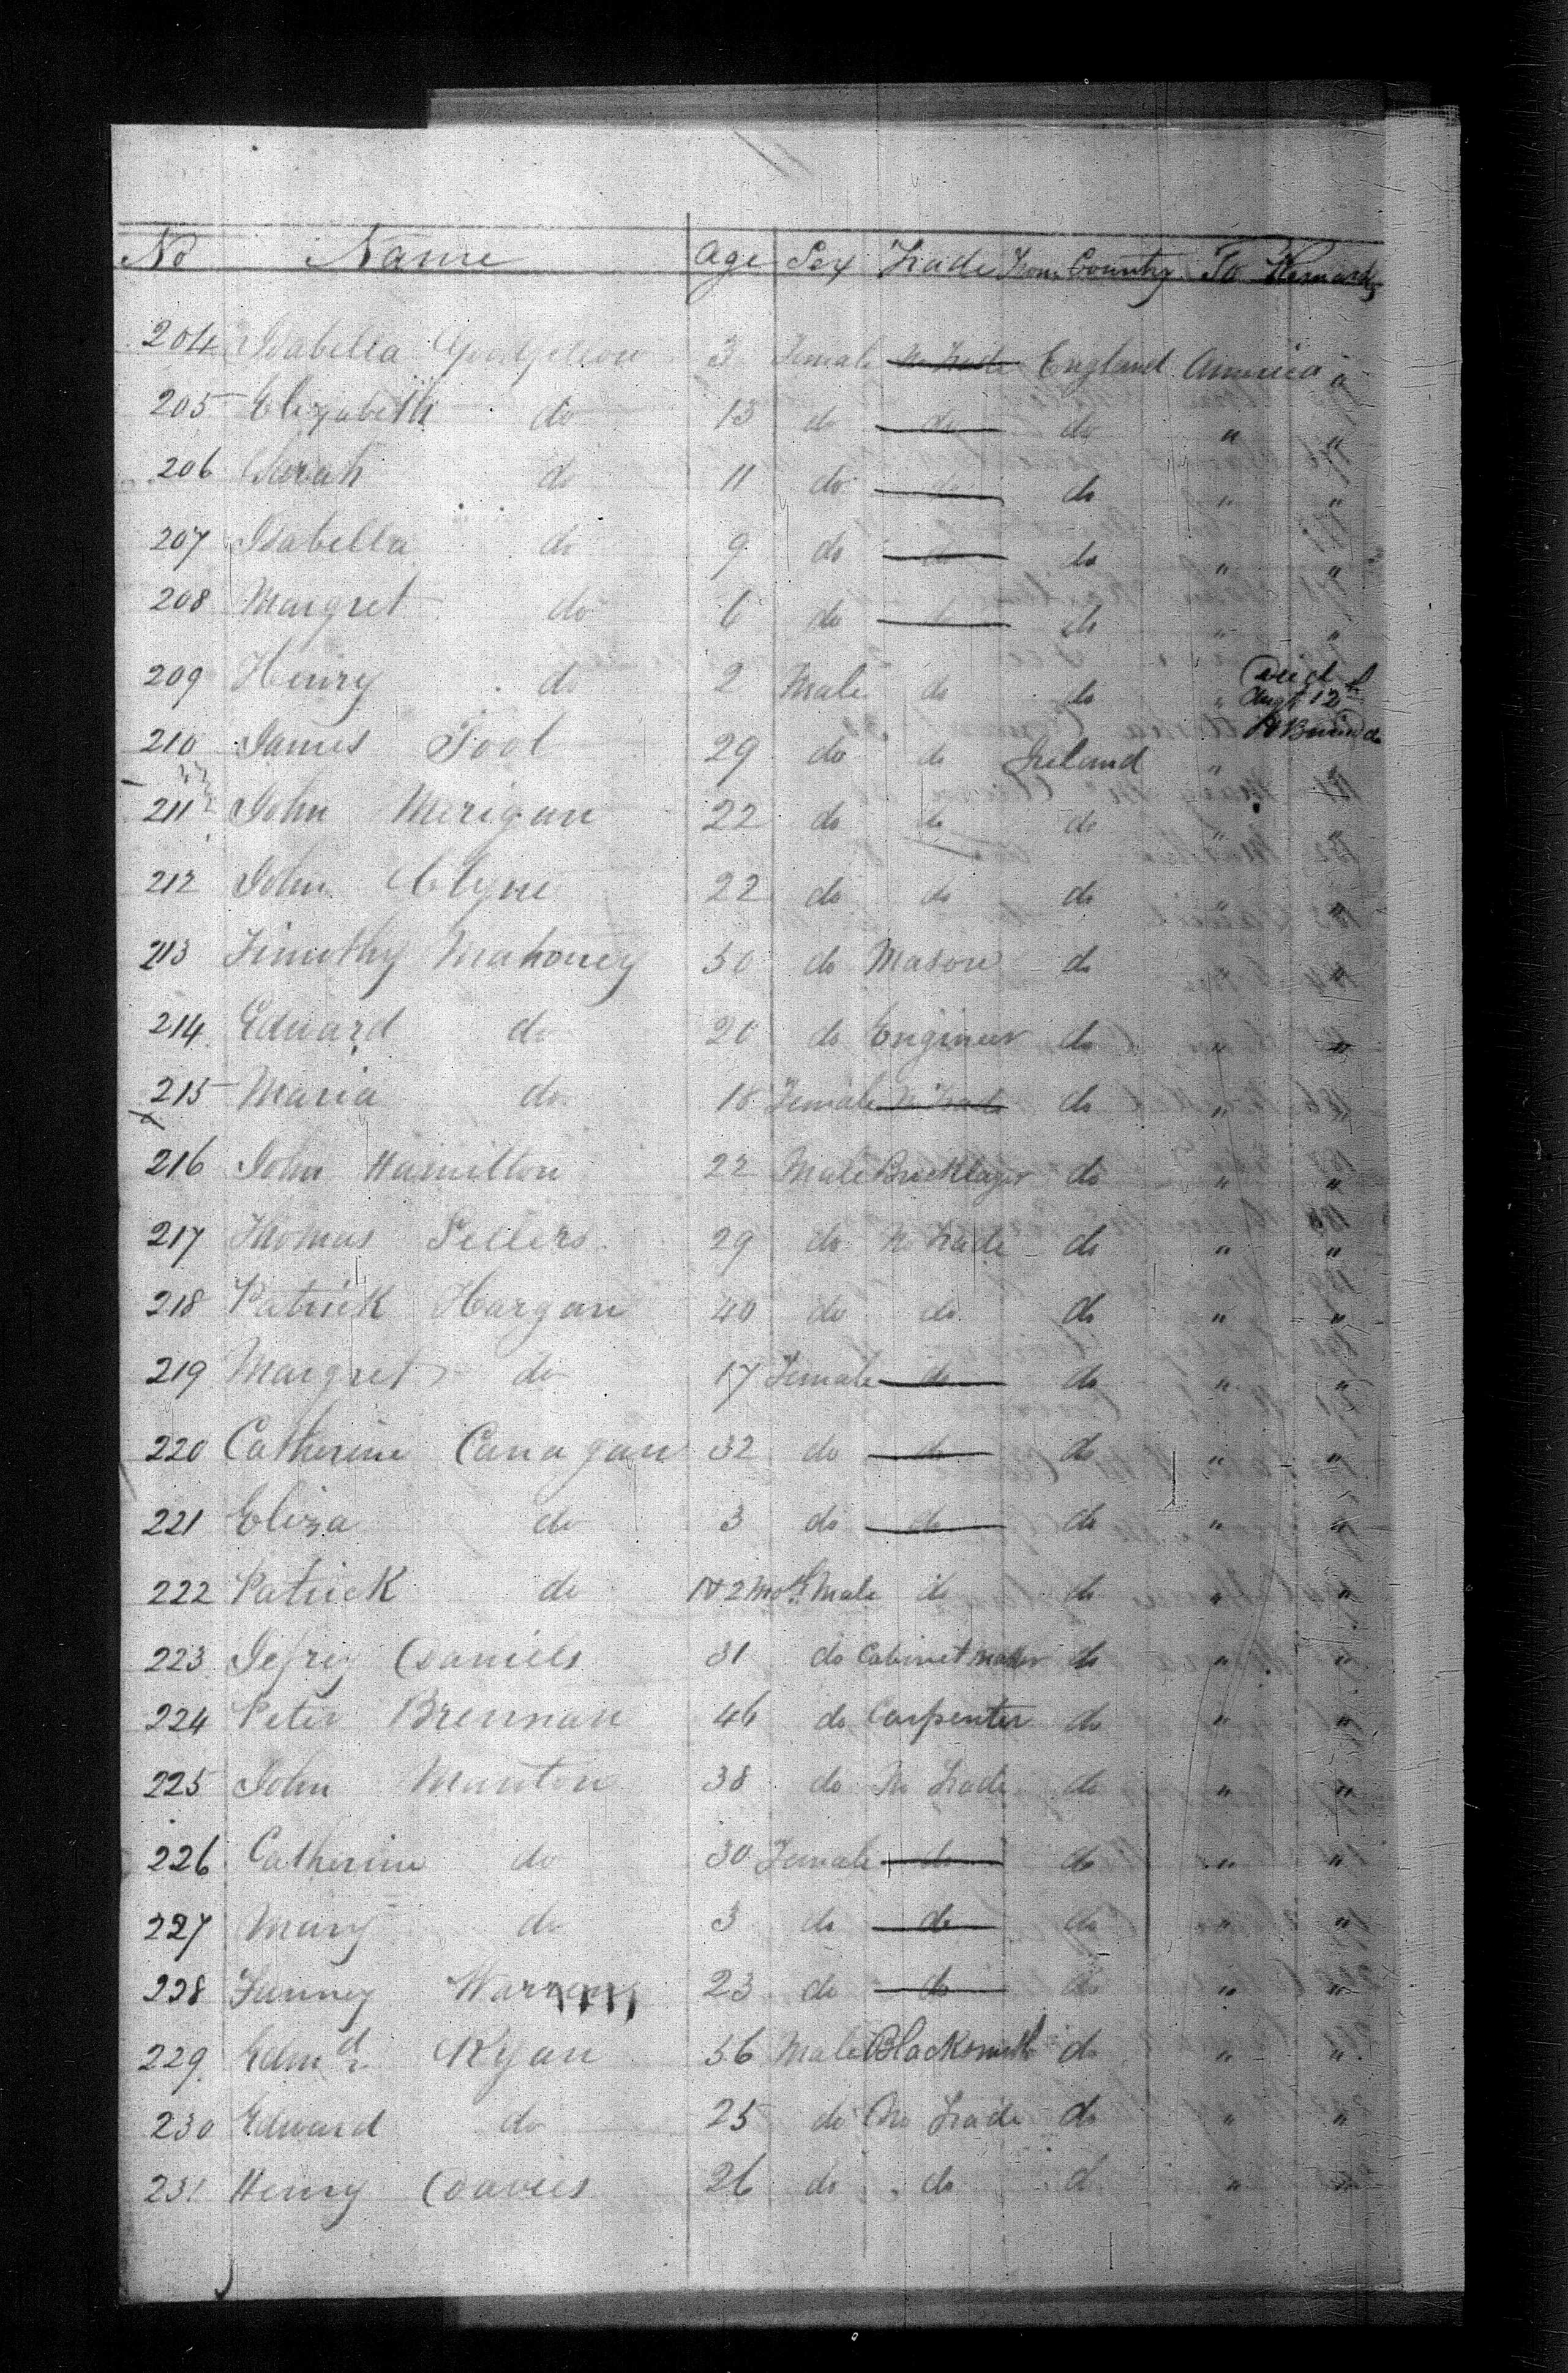 No Name Age Sex Trade From Country To Remarks
204 Isabella Goodfellow 3 Female No Trade England America "
205 Elizabeth do 13 do do do " "
206 Sarah do 11 do do do " "
207 Isabella do 9 do do do " "
208 Margret do 6 do do do " "
209 Henry do 2 Male do do " Died Augt 12th
210 James Tool 29 do do Ireland "
211 John Merigan 22 do do do " "
212 John Clyne 22 do do do " "
213 Timothy Mahoney 50 do Mason do "
214 Edward do 20 do Engineer do " "
215 Maria do 18 Female No Trade do "
216 John Hamilton 22 Male Bricklayer do " "
217 Thomas Sellers 29 do No Trade do " "
218 Patrick Hargan 40 do do do " "
219 Margret do 17 Female do do " "
220 Catherine Canagan 32 do do do " "
221 Eliza do 3 do do do " "
222 Patrick do 2 Mos Male do do " "
223 Jefrey Daniels 31 do Cabinet maker do " "
224 Peter Brennan 46 do Carpenter do " "
225 John Manton 38 do No Trade do " "
226 Catherine do 30 Female do do " "
227 Mary do 3 do do do " "
228 Fanney Warren 23 do do do " "
229 Edmd Ryan 56 Male Blacksmith do " "
230 Edward do 25 do No Trade do " "
231 Henry Davies 26 do do d " "